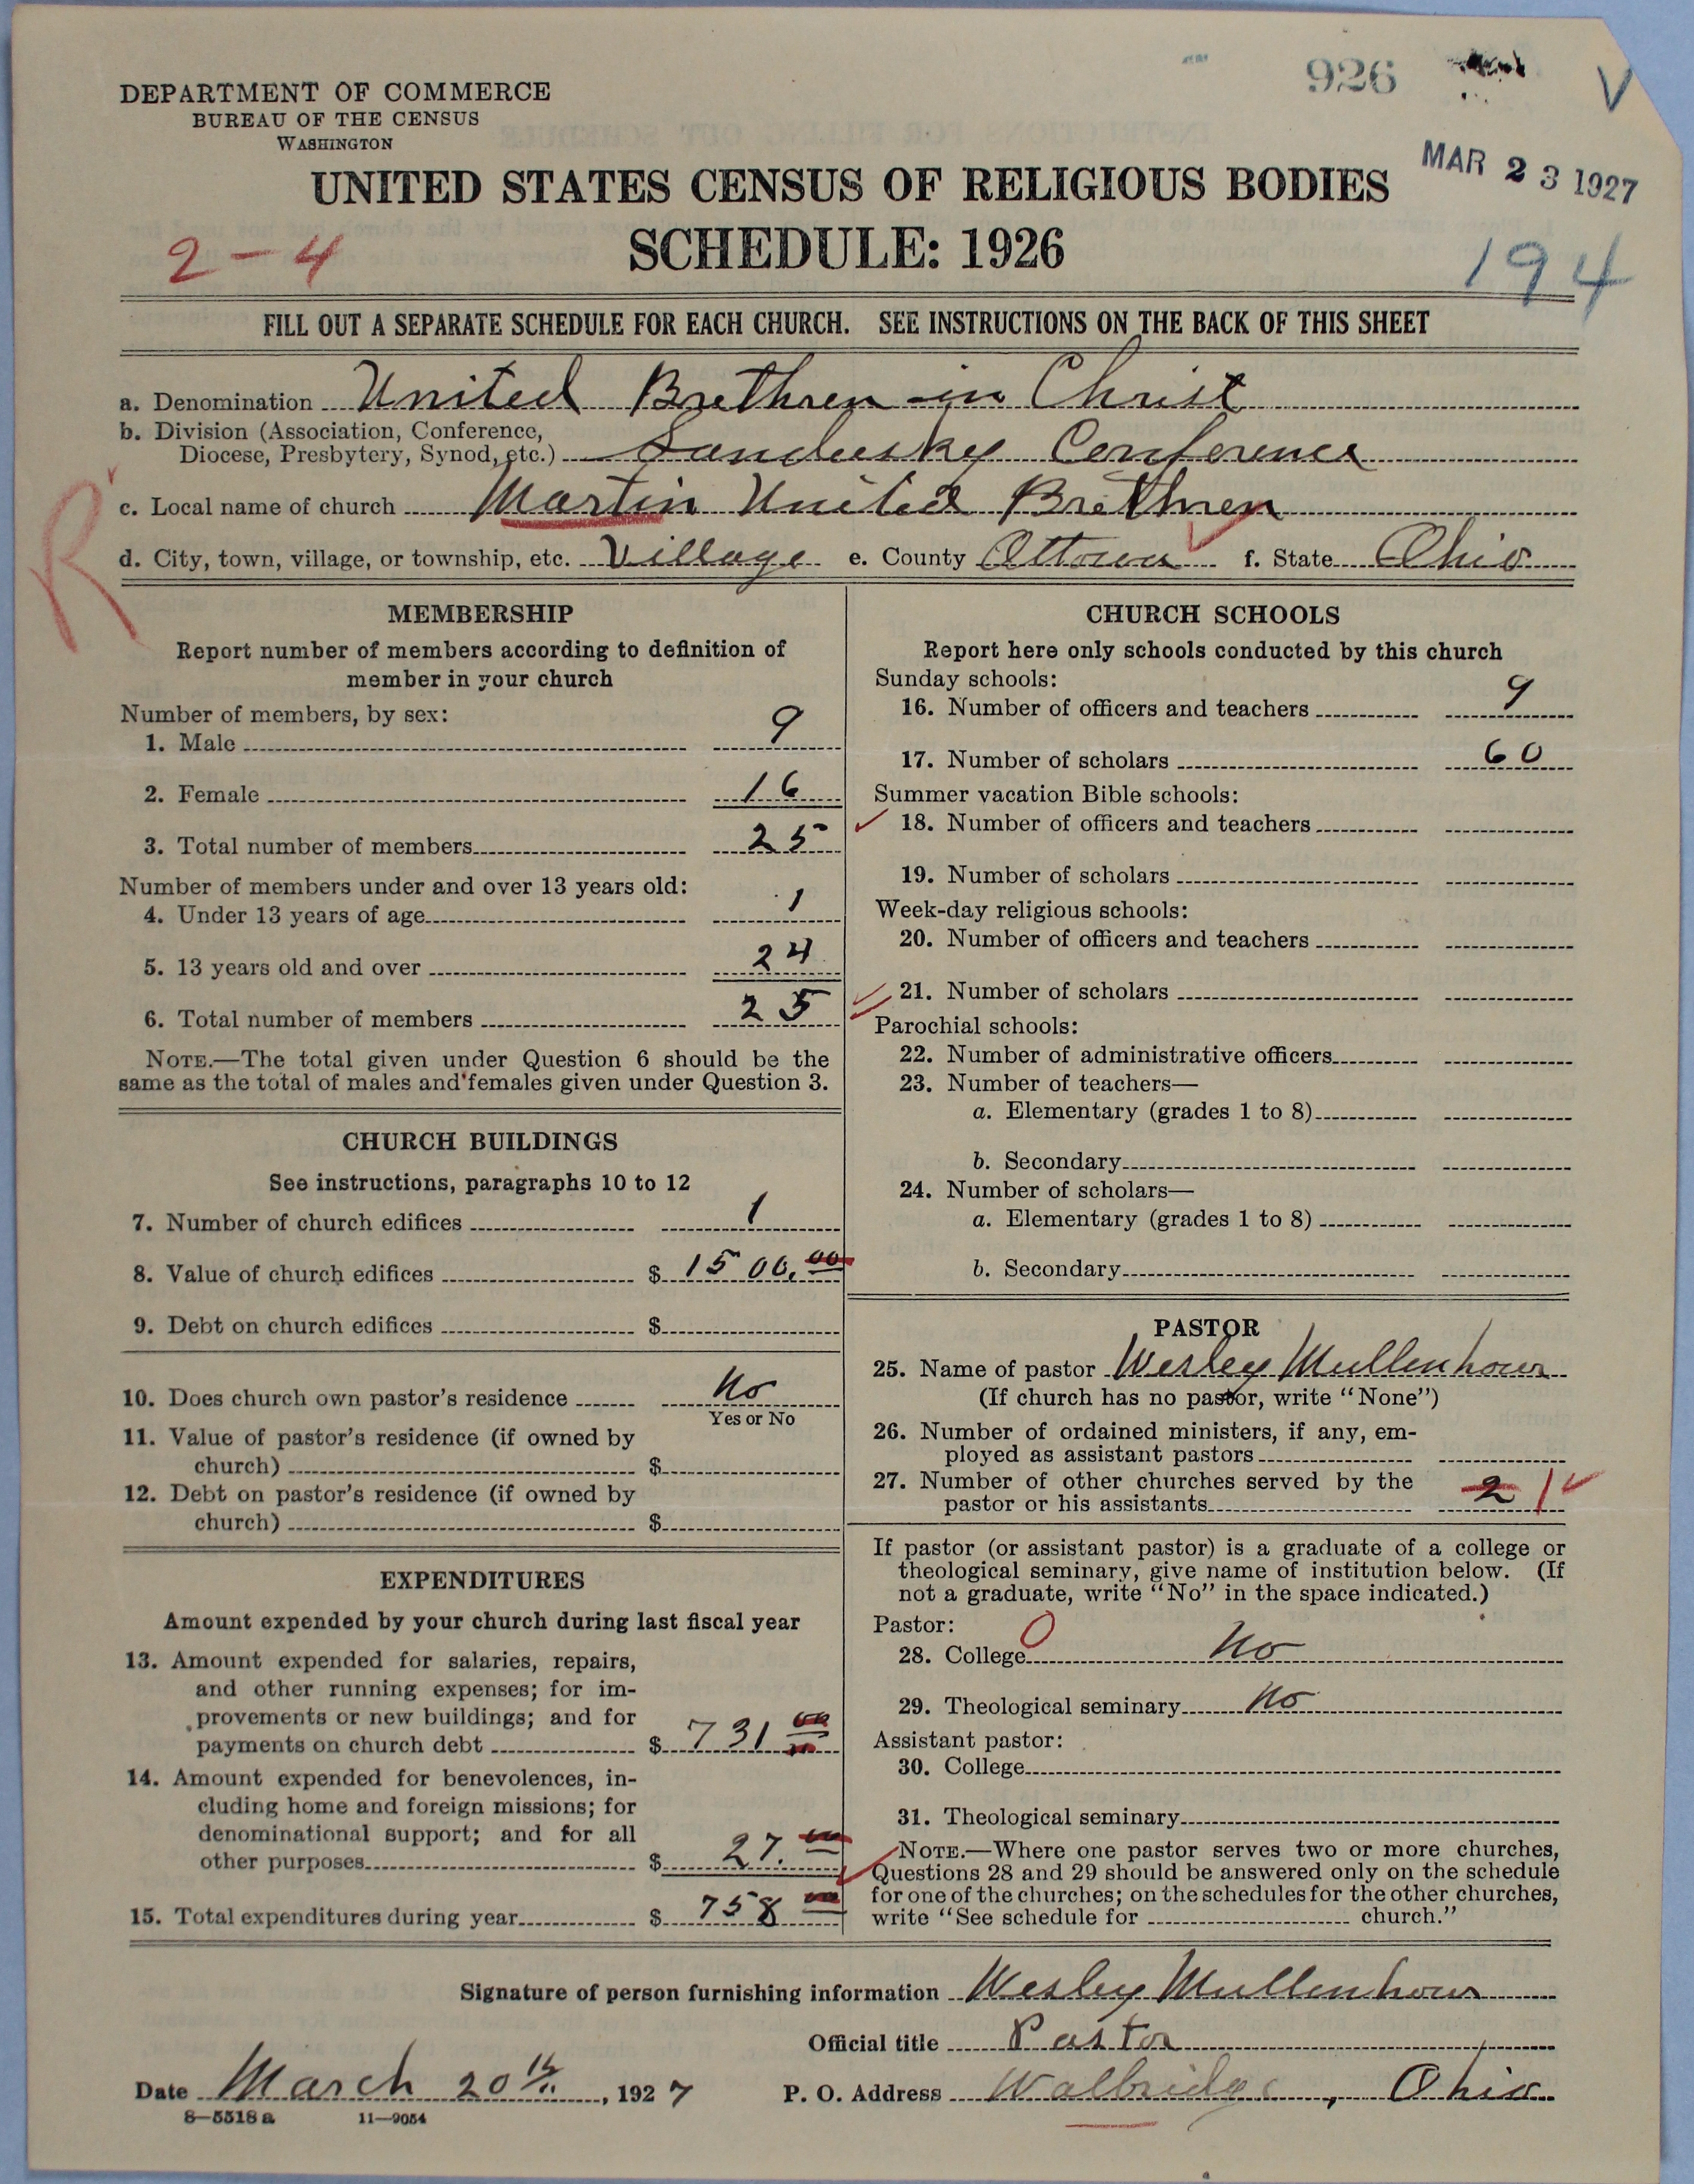 926
V
DEPARTMENT OF COMMERCE
BUREAU OF THE CENSUS
WASHINGTON
MAR 23 1927
UNITED STATES CENSUS OF RELIGIOUS BODIES
2-4
SCHEDULE: 1926
194
FILL OUT A SEPARATE SCHEDULE FOR EACH CHURCH. SEE INSTRUCTIONS ON THE BACK OF THIS SHEET
a. Denomination United Brethren in Christ
b. Division (Association, Conference,
Diocese, Presbytery, Synod, etc.) Sandusky Conference
R
c. Local name of church Martin United Brethren
d. City, town, village, or township, etc. Village e. County Ottowa f. State Ohio
MEMBERSHIP
Report number of members according to definition of
member in your church
Number of members, by sex:
1. Male 9
2. Female 16
3. Total number of members 25
Number of members under and over 13 years old:
4. Under 13 years of age 1
5. 13 years old and over 24
6. Total number of members 25
NOTE.—The total given under Question 6 should be the
same as the total of males and females given under Question 3.
CHURCH BUILDINGS
See instructions, paragraphs 10 to 12
7. Number of church edifices 1
8. Value of church edifices $ 1500.00
9. Debt on church edifices $
10. Does church own pastor's residence No
Yes or No
11. Value of pastor's residence (if owned by
church) $
12. Debt on pastor's residence (if owned by
church) $
EXPENDITURES
Amount expended by your church during last fiscal year
13. Amount expended for salaries, repairs,
and other running expenses; for im-
provements or new buildings; and for
payments on church debt $ 731 00
14. Amount expended for benevolences, in-
cluding home and foreign missions; for
denominational support; and for all
other purposes $ 27. 00
15. Total expenditures during year $ 758 00
CHURCH SCHOOLS
Report here only schools conducted by this church
Sunday schools:
16. Number of officers and teachers 9
17. Number of scholars 60
Summer vacation Bible schools:
18. Number of officers and teachers
19. Number of scholars
Week-day religious schools:
20. Number of officers and teachers
21. Number of scholars
Parochial schools:
22. Number of administrative officers
23. Number of teachers—
a. Elementary (grades 1 to 8)
b. Secondary
24. Number of scholars—
a. Elementary (grades 1 to 8)
b. Secondary
PASTOR
25. Name of pastor Wesley Mullenhour
(If church has no pastor, write "None")
26. Number of ordained ministers, if any, em-
ployed as assistant pastors
27. Number of other churches served by the
pastor or his assistants 2 1
If pastor (or assistant pastor) is a graduate of a college or
theological seminary, give name of institution below. (If
not a graduate, write "No" in the space indicated.)
Pastor: 0
28. College No
29. Theological seminary No
Assistant pastor:
30. College
31. Theological seminary
NOTE.—Where one pastor serves two or more churches,
Questions 28 and 29 should be answered only on the schedule
for one of the churches; on the schedules for the other churches,
write "See schedule for church."
Signature of person furnishing information Wesley Mullenhour
Official title Pastor
Date March 20th, 1927 P. O. Address Walbridge, Ohio
8—5518a 11—9054